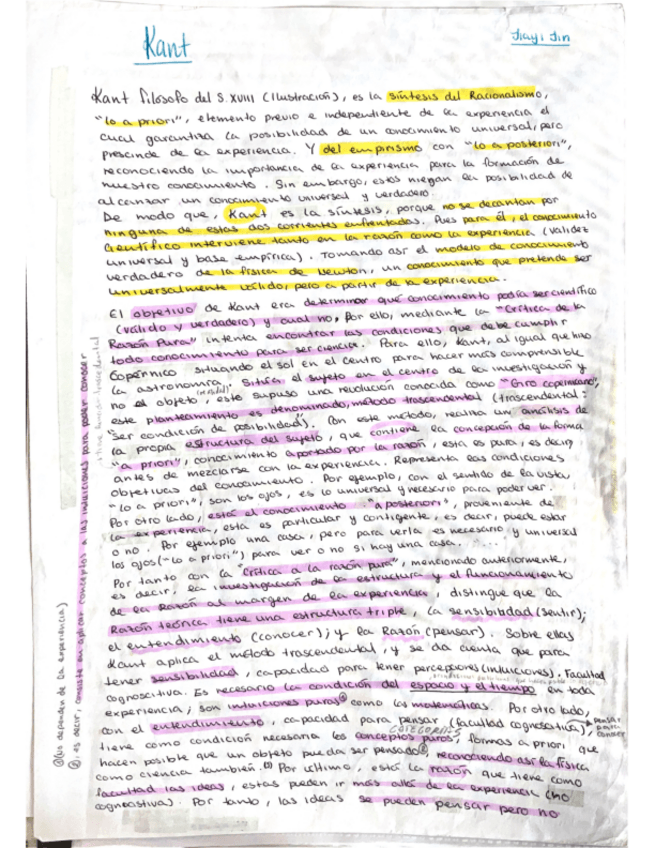 Kant
Jiayi Jin
Kant filósofo del S. XVIII (Ilustración), es la síntesis del Racionalismo,
"lo a priori", elemento previo e independiente de la experiencia el
cual garantiza la posibilidad de un conocimiento universal, pero
prescinde de la experiencia. Y del empirismo con "lo a posteriori",
reconociendo la importancia de la experiencia para la formación de
nuestro conocimiento. Sin embargo, estos niegan la posibilidad de
alcanzar un conocimiento universal y verdadero.
De modo que, Kant es la síntesis, porque no se decantan por
ninguna de estas dos corrientes enfrentadas. Pues para él, el conocimiento
científico interviene tanto en la razón como la experiencia (validez
universal y base empírica). Tomando así el modelo de conocimiento
verdadero de la física de Newton, un conocimiento que pretende ser
universalmente válido, pero a partir de la experiencia.
El objetivo de Kant era determinar qué conocimiento podía ser científico
(válido y verdadero) y cual no. Por ello, mediante la "Crítica de la
Razón Pura" intenta encontrar las condiciones que debe cumplir
todo conocimiento para ser ciencia. Para ello, Kant, al igual que hizo
Copérnico situando el sol en el centro para hacer más comprensible
la astronomía. Sitúa el sujeto en el centro de la investigación y
no el objeto, este supuso una revolución conocida como "Giro copernicano",
este planteamiento es denominado, método trascendental (trascendental:
"ser condición de posibilidad"). Con este método, realiza un análisis de
la propia estructura del sujeto, que contiene la concepción de la forma
"a priori", conocimiento aportado por la razón, esta es pura, es decir,
antes de mezclarse con la experiencia. Representa las condiciones
objetivas del conocimiento. Por ejemplo, con el sentido de la vista,
"lo a priori", son los ojos, es lo universal y necesario para poder ver.
Por otro lado, está el conocimiento "a posteriori", proveniente de
la experiencia, esta es particular y contigente, es decir, puede estar
o no. Por ejemplo una casa, pero para verla es necesario y universal
los ojos ("lo a priori") para ver o no si hay una casa.
Por tanto con la "Crítica a la razón pura", mencionado anteriormente,
es decir, la investigación de la estructura y el funcionamiento
de la Razón al margen de la experiencia, distingue que la
Razón teórica tiene una estructura triple, la sensibilidad (sentir);
el entendimiento (conocer); y la Razón (pensar). Sobre ellas
Kant aplica el método trascendental, y se da cuenta que para
tener sensibilidad, capacidad para tener percepciones (intuiciones). Facultad
cognoscitiva. Es necesario la condición del espacio y el tiempo en toda
experiencia; son intuiciones puras como las matemáticas. Por otro lado,
con el entendimiento, capacidad para pensar (facultad cognoscitiva),
pensar para conocer
CATEGORÍAS
tiene como condición necesaria los conceptos puros, formas a priori que
hacen posible que un objeto pueda ser pensado, reconociendo así la física
como ciencia también. Por último, está la razón que tiene como
facultad las ideas, estas pueden ir más allá de la experiencia (no
cognoscitiva). Por tanto, las ideas se pueden pensar pero no
no dependen de la experiencia)
es decir, consiste en aplicar conceptos a las intuiciones para poder conocer